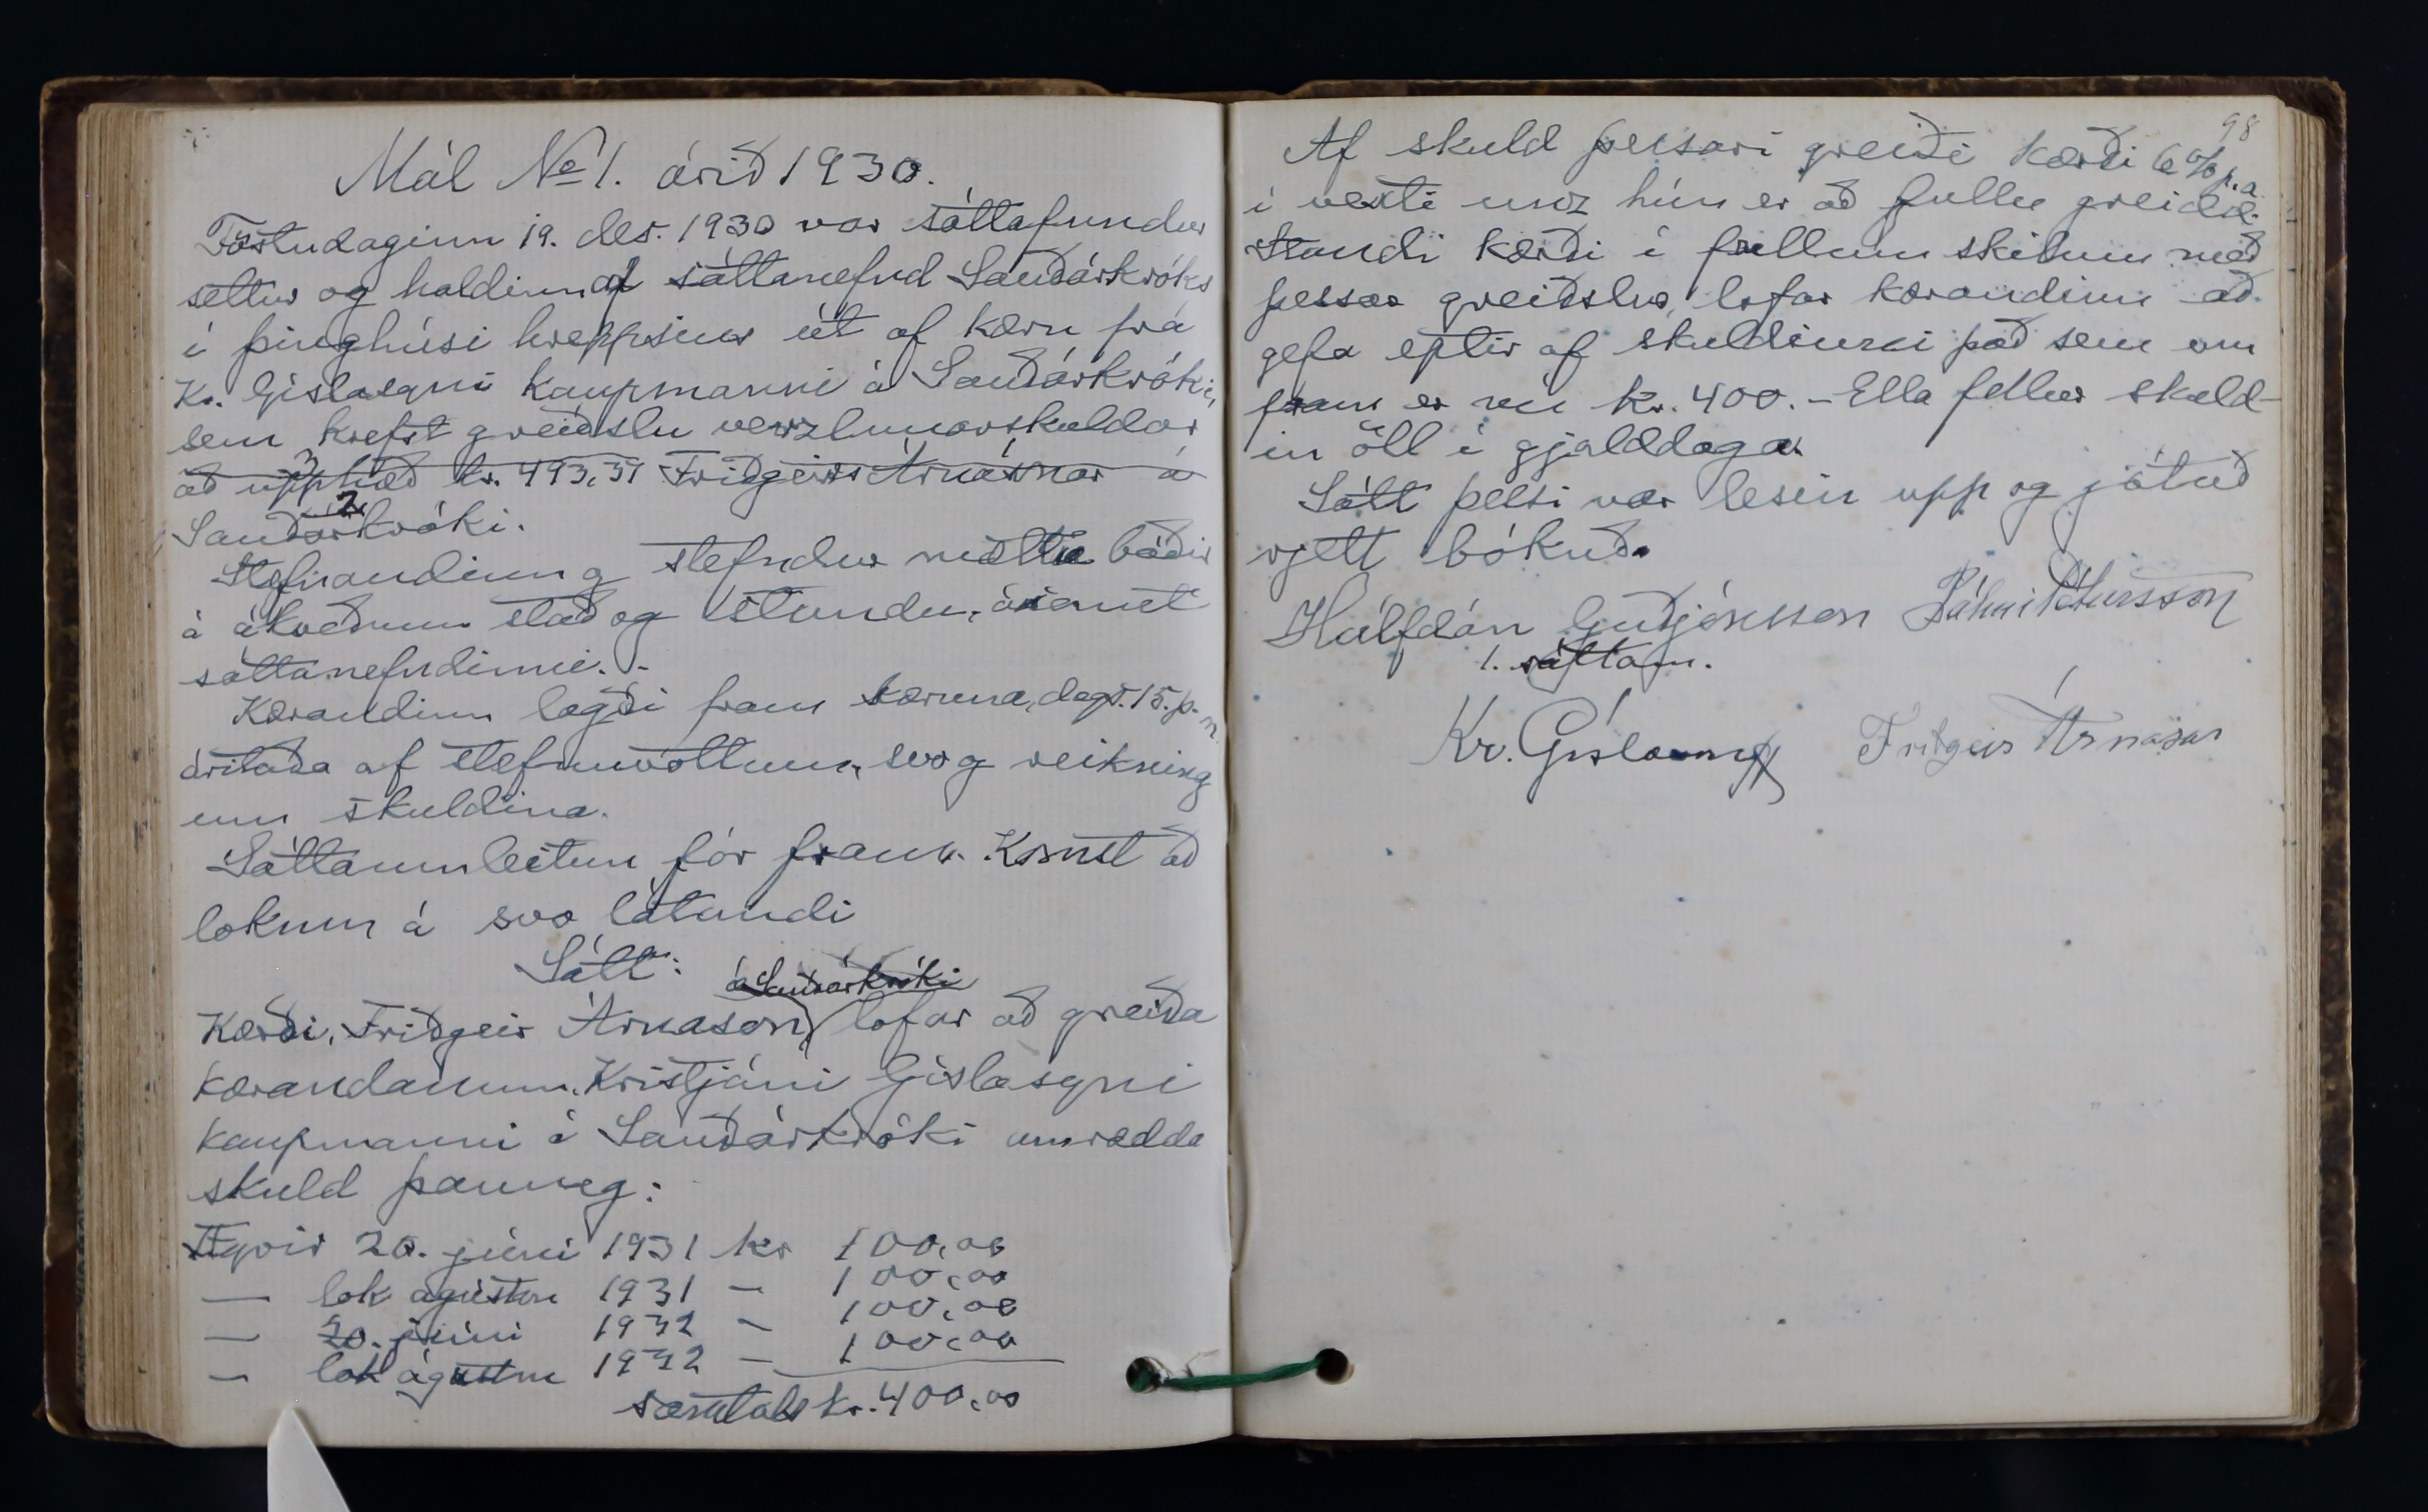 Mál № 1. árið 1930.
Föstudaginn 19. des. 1930 var sáttafundur
settur og haldinn af sáttanefnd Sauðárkróks
í þinghúsi hreppsins út af kæru frá
Kr. Gíslasyni kaupmanni á Sauðárkróki,
sem krefst greiðslu verzlunarskuldar
að upphæð kr. 493,31 Friðgeirs Árnasonar á
Sauðárkróki.
Stefnandinn og stefndur mættu báðir
á ákveðnum stað og stundu, ásamt
sáttanefndinni. -
Kærandinn lagði fram kæruna, dags. 15. þ. m.
áritaða af stefnuvottum, svo og reikning
um skuldina.
Sáttaumleitun fór fram. Komst að
lokum á svo látandi
Sátt:
á Sauðárkróki
Kærði, Friðgeir Árnason, lofar að greiða
kærandanum, Kristjáni Gíslasyni
kaupmanni á Sauðárkróki umrædda
skuld þannig:
Fyrir 20. júní 1931 kr 100,00
— lok ágústm 1931 — 100,00
— 20. júní 1932 — 100,00
— lok ágústm 1932 — 100,00
samtals kr. 400,00
98
Af skuld þessari greiði kærði 6% p.a.
í vexti unz hún er að fullu greidd.
Standi kærði í fullum skilum með
þessar greiðslur, lofar kærandinn að
gefa eptir af skuldinni það sem um
fram er nú kr. 400. - Ella fellur skuld-
in öll í gjalddaga.
Sátt þessi var lesin upp og játuð
rjett bókuð.
Hálfdán Guðjónsson Pálmi Pétursson
1. sáttam.
Kr. Gíslason Friðgeir Árnason